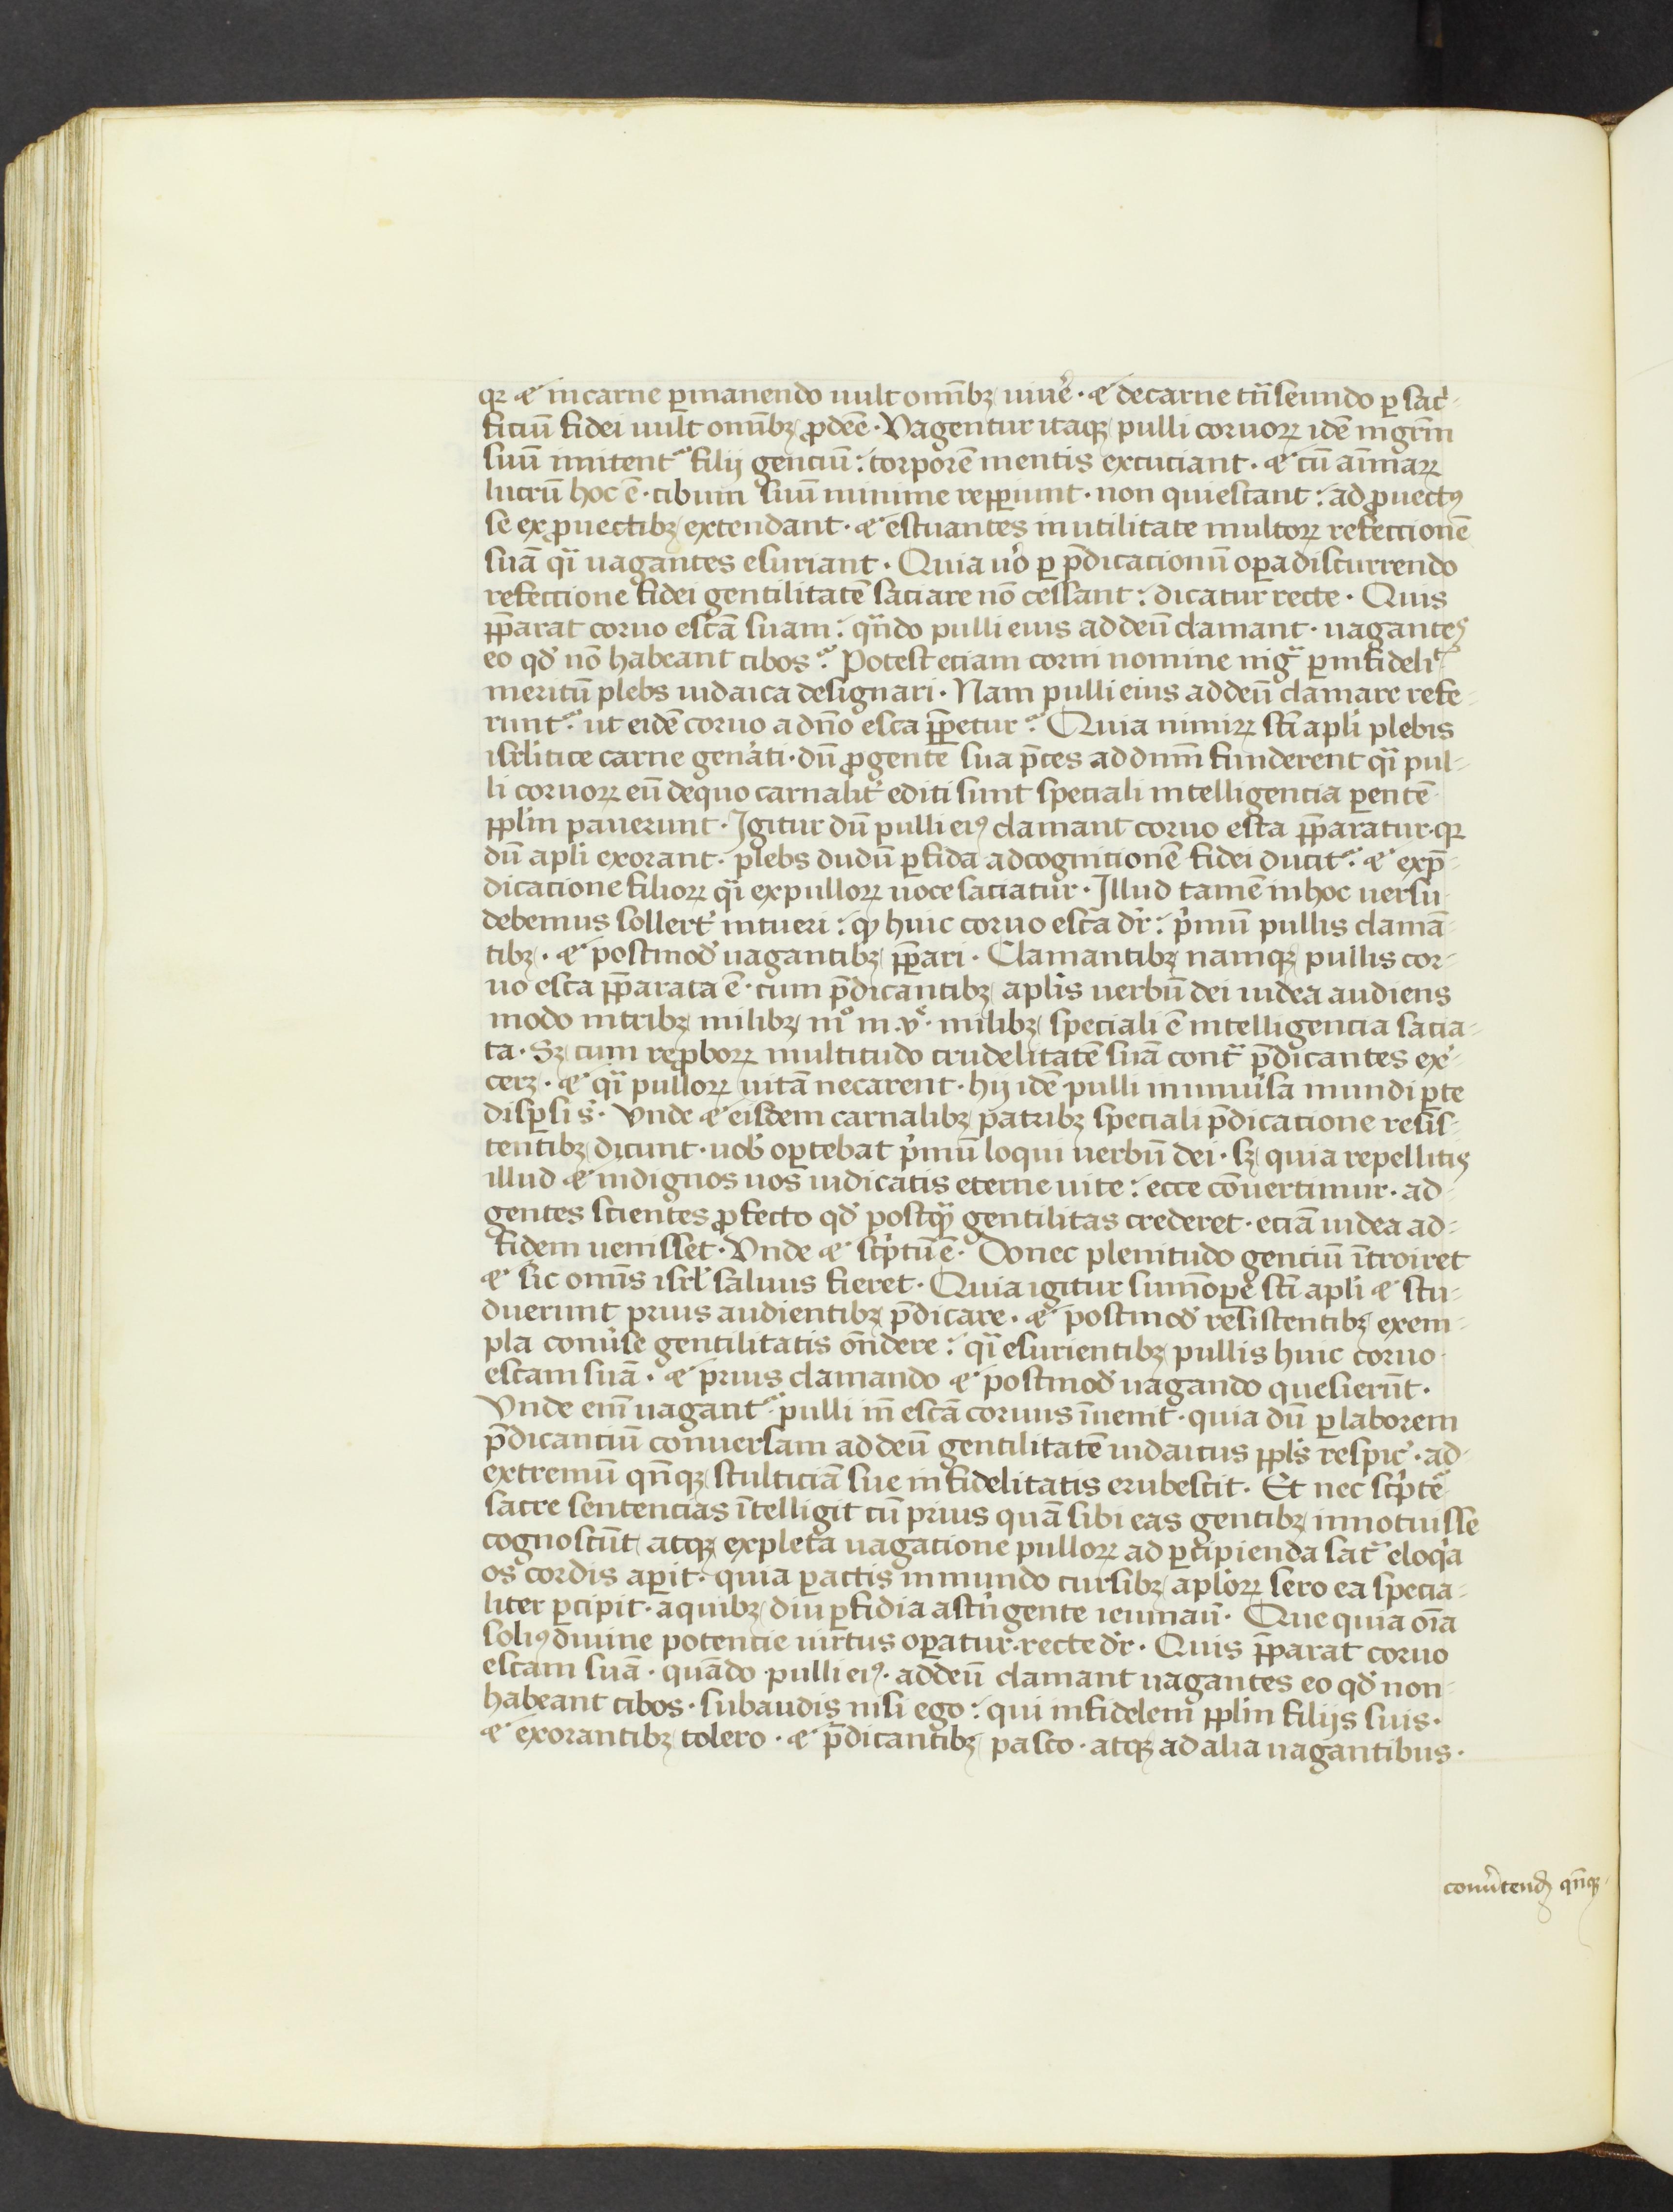 qꝛ ⁊ in carne ꝑmanendo uult omĩbꝫ uiuẽ · ⁊ de carne trãseundo ꝑ sacͥ-
ficiũ fidei uult omĩbꝫ ꝓdẽẽ · Vagentur itaqꝫ pulli coruoꝝ idẽ nigrẽm
suũ imitent᷑ filij genciũ : torporẽ mentis excuciant · ⁊ cũ aĩmaꝝ
lucrũ hoc ẽ · cibum suũ minime reꝑiunt · non quiescant : ad ꝓuectꝰ
se ex ꝓuectibꝫ extendant · ⁊ estuantes in utilitate multoꝝ refeccionẽ
suã qͣi uagantes esuriant · Quia uͦo ꝑ p̃dicacionũ oꝑa discurrendo
refeccione fidei gentilitatẽ saciare nõ cessant : dicatur recte · Quis
p̃parat coruo escã suam : qͣndo pulli eius ad deũ clamant · uagantes
eo qđ nõ habeant cibos · Potest eciam corui nomine nigͣ ꝑ infidelit᷑
meritũ plebs iudaica designari · Nam pulli eius ad deũ clamare refe-
runt᷑ ut eidẽ coruo a dño esca p̃petur · Quia nimiꝝ sc̃i apl̃i plebis
isrl̃itice carne geñati · dũ ꝓ gente sua p̃ces ad dnm̃ funderent qͣi pul-
li coruoꝝ eũ de quo carnalit̾ editi sunt speciali intelligencia ꝑentẽ
ppl̃m pauerunt · Igitur dũ pulli eiꝰ clamant coruo esca p̃paratur · qꝛ
dũ apl̃i exorant · plebs dudũ ꝑfida ad cognitionẽ fidei ducit᷑ · ⁊ ex p̃-
dicacione filioꝝ qͣi ex pulloꝝ uoce saciatur · Illud tamẽ in hoc uersu
debemus sollert̾ intueri : ꝙ huic coruo esca dr̃ : pͥmũ pullis clamã-
tibꝫ · ⁊ postmođ uagantibꝫ p̃pari · Clamantibꝫ namqꝫ pullis cor-
uo esca p̃parata ẽ · cum p̃dicantibꝫ apl̃is uerbũ dei iudea audiens
modo in tribꝫ milibꝫ mͦ in · v͛ · milibꝫ speciali ẽ intelligencia sacia-
ta · Sꝫ cum reꝓboꝝ multitudo crudelitatẽ suã contͣ p̃dicantes ex̾-
cerꝫ · ⁊ qͣi pulloꝝ uitã necarent · hij idẽ pulli in uniũsa mundi ꝑte
disꝑsi s̃ · Vnde ⁊ eisdem carnalibꝫ patribꝫ speciali p̃dicacione resis-
tentibꝫ dicunt · uob̾ oꝑtebat pͥmũ loqui uerbũ dei · sꝫ quia repellitis
illud ⁊ indignos uos iudicatis eterne uite : ecce cõuertimur · ad
gentes scientes ꝓfecto qđ postqͣꝫ gentilitas crederet · eciã iudea ad
fidem uenisset · Vnde ⁊ scͥptũ ẽ · Donec plenitudo genciũ ĩtroiret
⁊ sic omĩs isrl̃ saluus fieret · Quia igitur sum̃oꝑe sc̃i apl̃i ⁊ stu-
duerunt prius audientibꝫ p̃dicare · ⁊ postmođ resistentibꝫ exem-
pla conũse gentilitatis oñdere : qͣi esurientibꝫ pullis huic coruo
escam suã · ⁊ prius clamando ⁊ postmođ uagando quesierũt ·
Vnde eñi uagant᷑ pulli iñ escã coruus ĩuenit · quia dũ ꝑ laborem
p̃dicanciũ conuersam ad deũ gentilitatẽ iudaicus ppl̃s respic̾ · ad
extremũ qñqꝫ stulticiã sue infidelitatis erubescit · Et nec scͥptͤ
sacre sentencias ĩtelligit cũ prius quã sibi eas gentibꝫ innotuisse
cognoscũt atqꝫ expleta uagacione pulloꝝ ad ꝑcipienda sacͣ eloqͥa
os cordis aꝑit · quia ꝑactis in mundo cursibꝫ apl̃oꝝ sero ea specia-
liter ꝑcipit · a quibꝫ diu ꝑfidia astͥngente ieiunaũ · Que quia oĩa
soliꝰ diuine potentie uirtus oꝑatur · recte dr̃ · Quis p̃parat coruo
escam suã · quãdo pulli eiꝰ · ad deũ clamant uagantes eo qđ non
habeant cibos · subaudis nisi ego : qui infidelem ppl̃m filijs suis ·
⁊ exorantibꝫ tolero · ⁊ p̃dicantibꝫ pasco · atqꝫ ad alia uagantibus ·
conũtendꝫ qñqꝫ